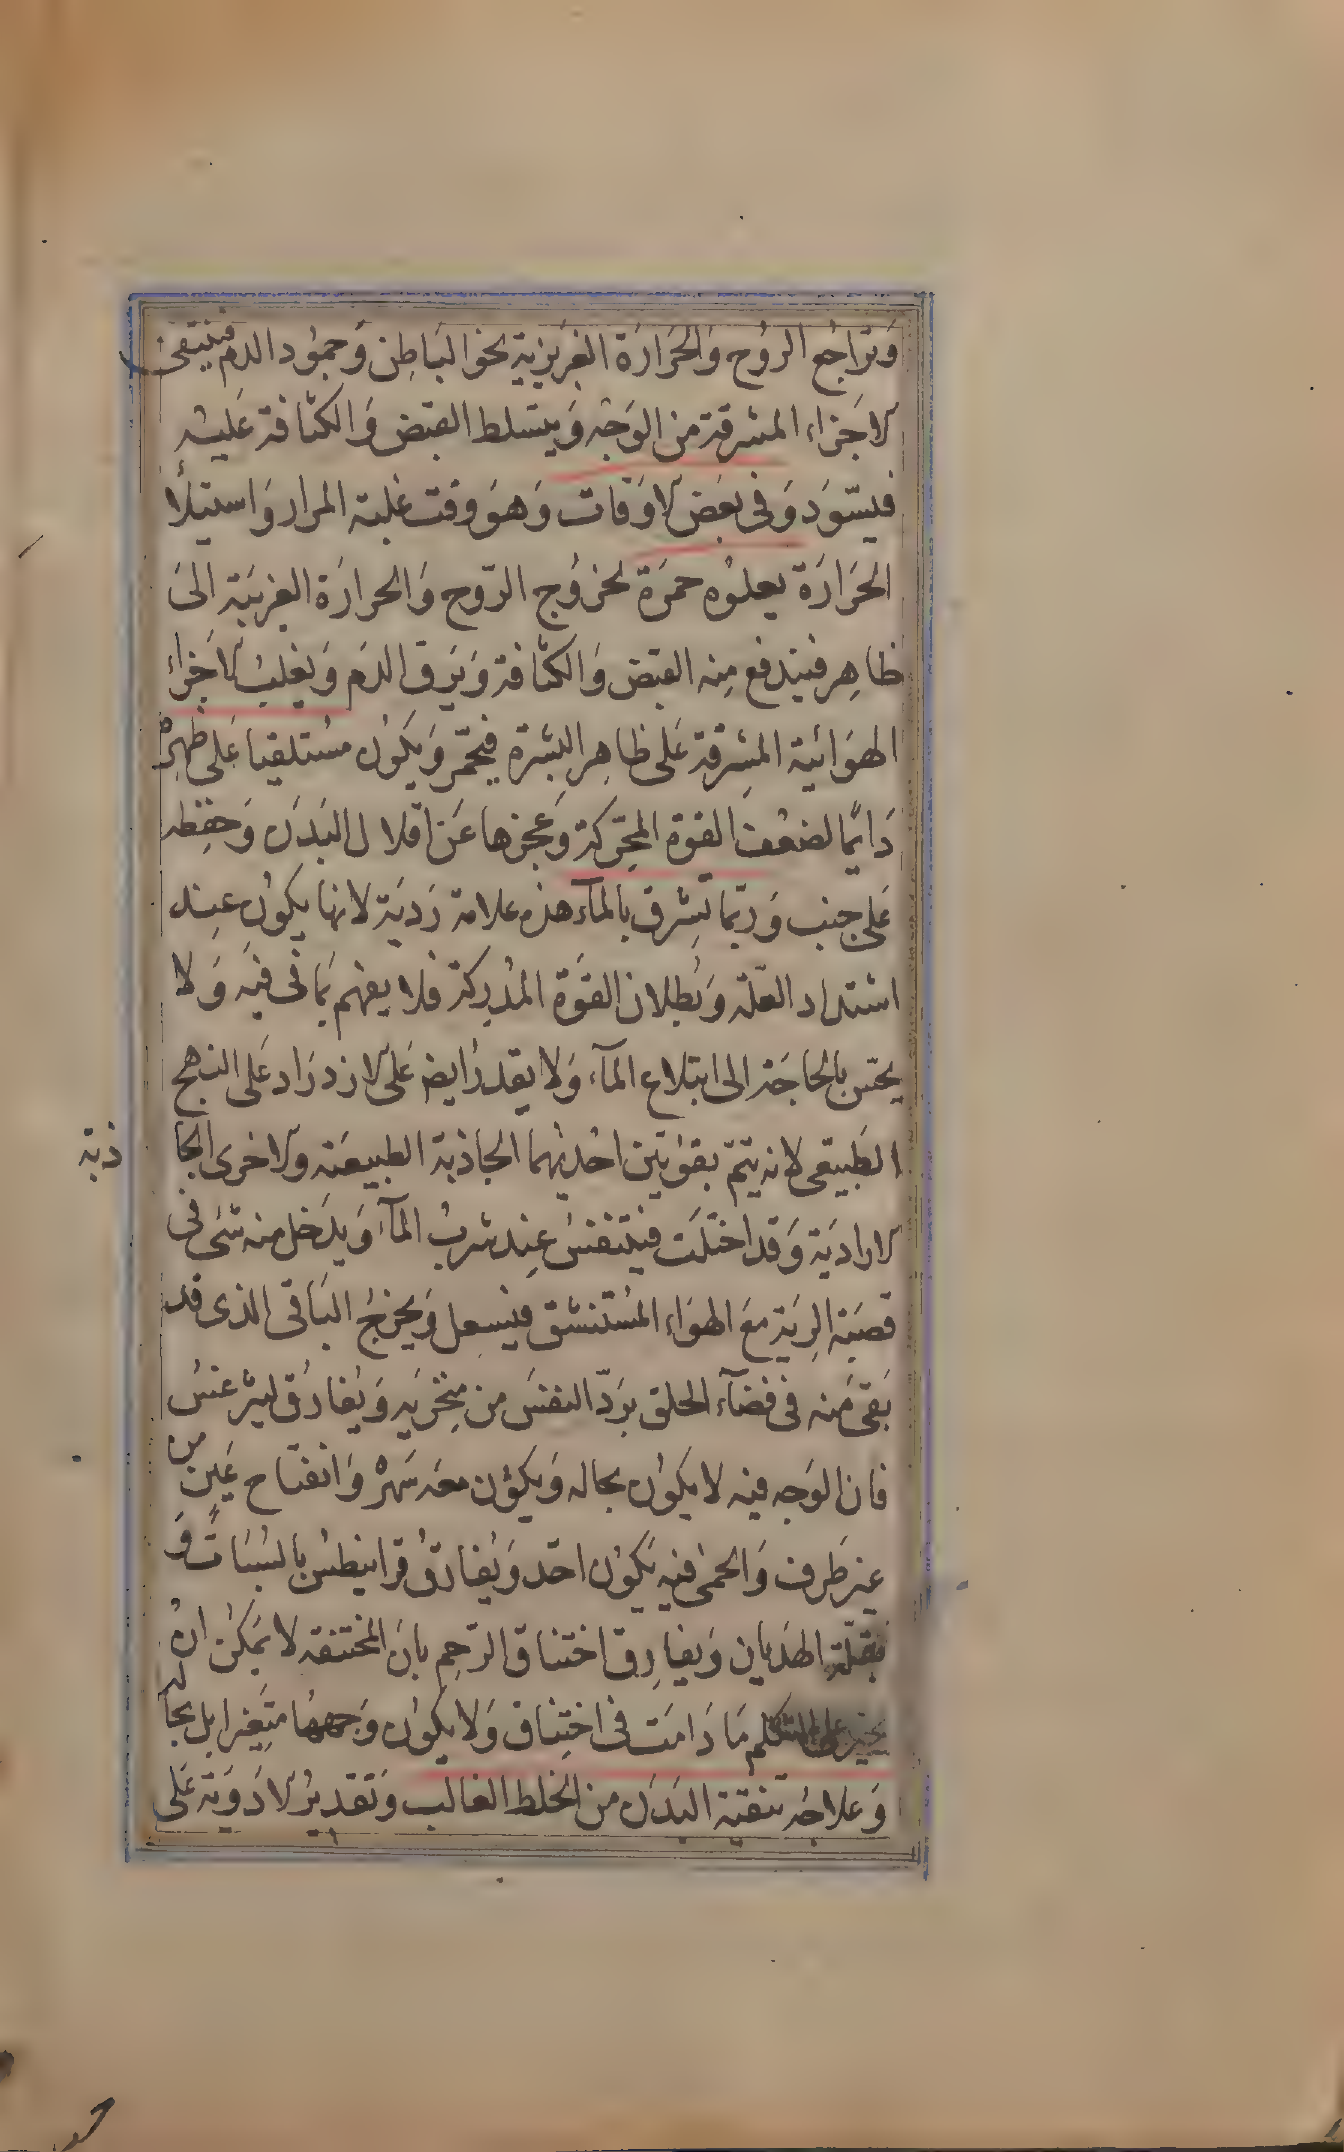 وَتَرَاجُع الروُح وَالحَرَارَة الغَرَيزية نحو البَاطِن وَجموُد الدم فينتفى
الاجَزاء المشرقة من الوَجْه وَيتسَلط القبَض وَالكثافة عَليه
فيسّوَد وَفى بعَض الاوَقات وَهوَ وَقت غلبة المرار وَاستيلأ
الحَرَارَة يعلوُه حمرَة لخروُج الرّوح وَالحرارَة الغريبَة الىَ
ظاهِر فيندفع مِنه القبَض وَالكثافة وَيَرق الدَم وَيغلب الاجَزاء
الهوَائية المشِرقة عَلى ظاهِر البشرة فيحّمر وَيكوُن مسُتلقيا عَلى ظهرهْ
دَايمًا لضعُف القوة المحِّركة وعَجزها عَن اقلال البَدَن وَحفِظه
عَلى جنب وَربّما تشِرق بالمآء هذه علامة رَديَة لانها يكوُن عِند
اشتداد العّلة وَبُطلان القوَّة المدُركة فلا يفهم بمَا فى فيَه وَلا
يحّس بالحَاجَة الى ابتلاع المآء وَلا يقدرُ ايض عَلى الازدرَاد عَلى النهج
الطَبيعى لانه يتمّ بقوُتيَن احدُيهما الجاذبَة الطبيعَة والاخرى الجا
ذبة
الاراديَة وَقد اختلَت فيتنفسُ عِند شربُ المآء وَيدَخل منه شىَ فى
قصبَة الرِيَة معَ الهوَاء المسُتنشق فيسعِل وَيخرجُ البَاقى الذى قد
بَقىَ مَنه فى فضآء الحلق برَدّ النفسَ من مِنخرَيه وَيفُارُق ليثرغسُ
فان الوَجه فيه لا يكوُن بحاله وَيكوُن معَه سَهرْ وَانفتاح عَين من
غير طَرف وَالحمىٰ فيِه يَكوُن احّد وَيُفارقُ قرانيطسُ بالسُبَات وَ
بقلّة الهَذيان وَيفارِق اختناق الرّحِم بانَ المختنقه لا يمَكن انُ
يجبر على التكلم مَا دَامَت فى اختِناق وَلا يكوُن وَجهها متغِيرا بل بحاله
وَعلاجُه تنقية البَدَن من الخلط الغالب وَتقديرُ الادَويَة عَلى